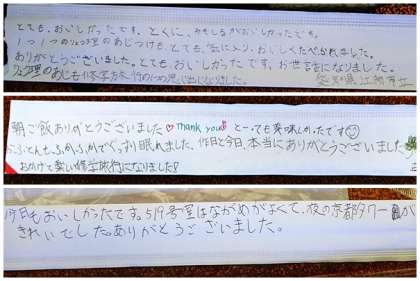 とても、おいしかったです。とくに、みそしるがおいしかったです。
1つ1つのりょう理のあじつけも、とても、気に入り、おいしくたべられました。
ありがとうございました。とても、おいしかったです。お世話になりました。
りょう理のあじも修学方旅行の1つの思い出になりました。
朝ご飯ありがとうございました♡ Thank you とーっても美味しかったです☺
ふとんもふかふかでぐっすり眠れました。昨日と今日、本当にありがとうございました
おかげで楽しい修学旅行になりました!
今日もおいしかったです。519号室はながめがよくて、夜の京都タワーが
きれいでした。ありがとうございました。